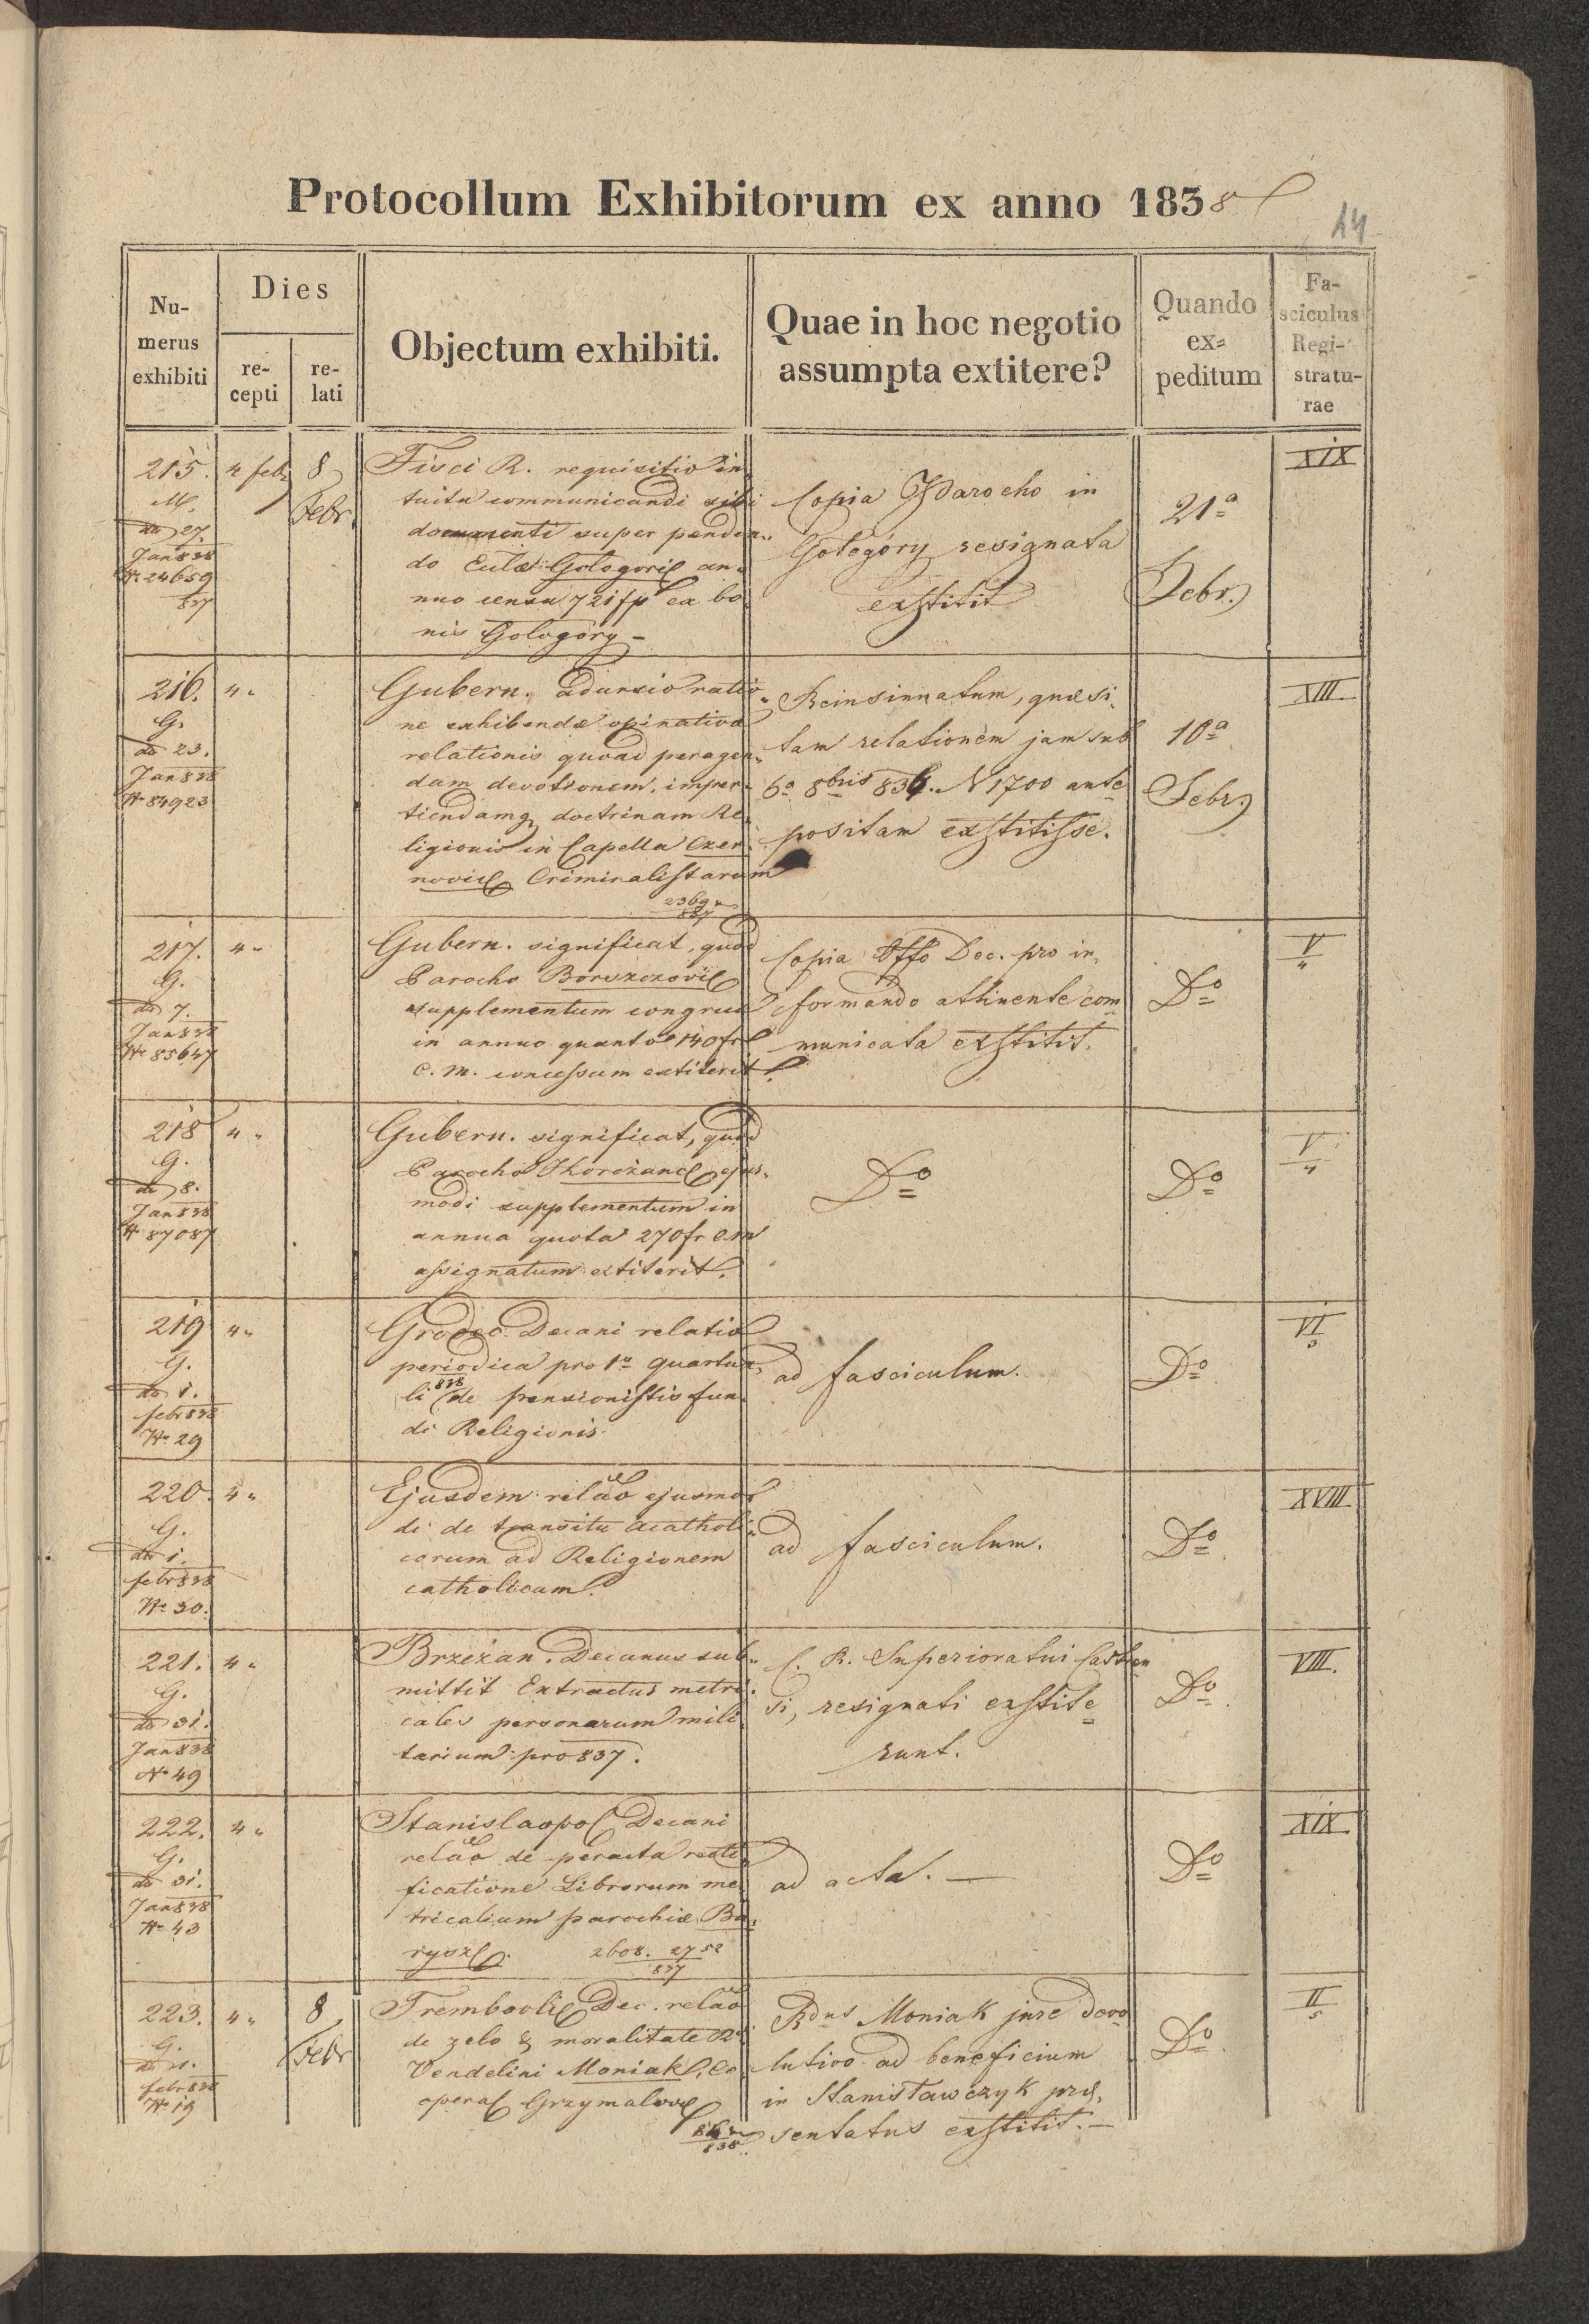 Protocollum Exhibitorum ex anno 1838
14
Numerus exhibiti
Dies
recepti
relati
Objectum exhibiti.
Quae in hoc negotio assumpta extitere?
Quando expeditum
Fasciculus Registraturae
215.
M.
do 27.
Jan 838
Nr 24659
837
4 febr
8
Febr.
Fisci R. requisitio in
tuitu communicandi sibi
documenti super penden-
do Eccl͠ae Gologori͠e an-
nuo censu 721 fp ex bo
nis Gologòry –
Copia Parocho in
Gołogóry resignata
exstitit
21a
Febr.
XIX
216.
G.
do 23.
Jan 838
Nr 84923
4 "
Gubern. adursio ratio
ne exhibendæ opinativæ
relationis quoad peragen-
dam devotionem, imper-
tiendamq doctrinam Re
ligionis in Capella Czer
novic Criminalistarum
2369
837
Reinsinuatum, quæsi
tam relationem jam sub
6a 8bris 836. N 1700 ante
positam exstitisse.
10a
Febr.
XIII
217.
G.
do 7.
Jan 838
Nr 85647
4 "
Gubern. significat, quod
Parocho Borszczovic
supplementum congruæ
in annuo quanto 140 fr
C. M. concessum extiterit.
Copia Offo Dec. pro in
formando attinente com
municata exstitit.
Do
V
4
218
G.
do 8.
Jan 838
Nr 87087
4 "
Gubern. significat, quod
Parocho Horożanc ejus-
modi supplementum in
annua quota 270 fr C.M
assignatum extiterit.
Do
Do
V
4
219
G.
do 1.
febr 838
Nr 29
4 "
Grodec. Decani relatio
periodica pro 1o quarta
li 838 de pensionistis fun
di Religionis.
ad fasciculum.
Do
VI
3
220.
G.
do 1.
febr 838
Nr 30.
4 "
Ejusdem relão ejusmo
di de transitu acatholi
corum ad Religionem
catholicam.
ad fasciculum.
Do
XVIII
221.
G.
do 31.
Jan 838
Nr 49
4 "
Brzeżan. Decanus sub-
mittit Extractus metri
cales personarum mili
tarium pro 837.
C. R. Superioratui Castren
si, resignati exstite
runt.
Do
VIII.
222.
G.
do 31.
Jan 838
Nr 43
4 "
Stanislaopol Decani
relão de peracta recti
ficatione Librorum me
tricalium parochiæ Ba
rysz. 2608. 2752
837
ad acta. —
Do
XIX
223.
G.
febr 838
Nr 19
4 "
8
Febr
Trembovlic Dec. relão
de zelo & moralitate R.
Vendelini Moniak, Co
operat Grzymalov
838
Rdus Moniak jure devo
lutivo ad beneficium
in Stanisławczyk præ
sentatus exstitit. —
Do
II
5